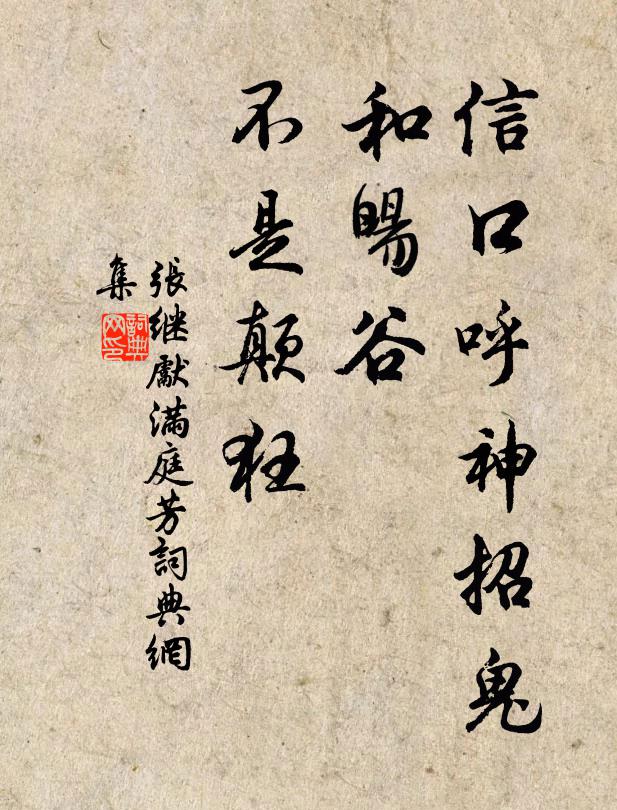 信口呼神招鬼
和暘谷
不是顛狂
張继獻滿庭芳詞典網
集
詞典
网印